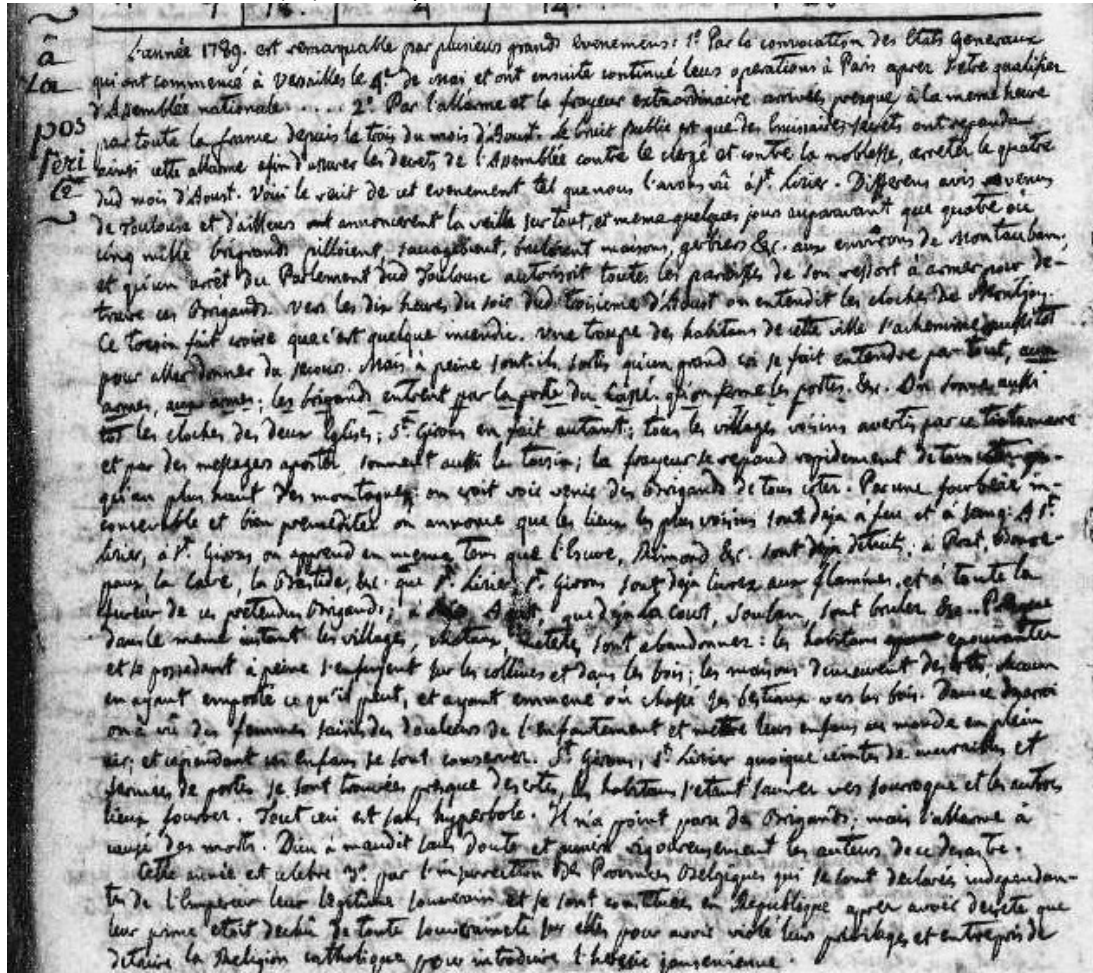 â
la
pos
teri
te
L'année 1789. est remarquable par plusieurs grands evenemens: 1º Par la convocation des Etats Generaux
qui ont commencé à Versailles le 4e de mai et ont ensuite continué leurs operations à Paris aprez s'etre qualifier
d'Assemblée nationale..... 2º Par l'allarme et la frayeur extraordinaire arrivées presque à la meme heure
par toute la france depuis le trois du mois d'Aoust. Le bruit public est que des Emissaires secrets ont repandu
ainsi cette allarme afin d'assurer les decrets de l'Assemblée contre le clergé et contre la noblesse, arretez le quatre
dud mois d'Aoust. Voici le recit de cet evenement tel que nous l'avons vû à St. Lizier. Differens avis venus
de Toulouse et d'ailleurs ont annoncerent la veille sur tout, et meme quelques jours auparavant que quatre ou
cinq mille brigands pilloient, saccageoient, bruloient maisons, gerbiers &c. aux environs de Montauban,
et qu'un arrêt du Parlement dud Toulouse autorisoit toutes les paroisses de son ressort à armer pour de-
truire ces Brigands. Vers les dix heures du soir dud troisieme d'Aoust on entendit les cloches de Montjoy.
Ce tocsin fait croire que c'est quelque incendie. Une troupe des habitans de cette ville s'achemine aussitot
pour aller donner du secours. Mais à peine sont-ils sortis qu'un grand cri se fait entendre par tout, aux
armes, aux armes; les brigands entrent par la porte du qu'on ferme les portes. &c. On sonne aussi
tot les cloches des deux Eglises; St. Girons en fait autant; tous les villages voisins avertis par ce tintamarre
et par des messagers apostez, sonnent aussi le tocsin; la frayeur se repand rapidement de
qu'au plus haut des montagnes: on croit voir venir des Brigands de tous cotez. Par une fourberie in-
concevable et bien premeditée on annonce que les lieux les plus voisins sont deja a feu et à sang: A St.
Lizier, à St. Girons on apprend en meme tems que l'Escure, Rimond &c. sont deja détruits; à Prat, Bonre-
paux la Cave, la Bastide, &c. que St. Lizier, St. Girons sont deja livrez aux flammes, et à toute la
fureur de ces pretendus Brigands; à que deja la Court, Soulan, sont brulez &c..
dans le meme instant les villages, chateaux, sont abandonnez: les habitans epouvantez
et se possedant à peine s'enfuyent sur les collines et dans les bois; les maisons demeurent desertes, chacun
en ayant emporté ce qu'il peut, et ayant emmené où chassé ses bestiaux vers les bois. Dans ce desarroi
on a vû des femmes saisies des douleurs de l'enfantement et mettre leurs enfans au monde en plein
air; et cependant ces Enfans se sont conservez. St. Girons, St. Lizier quoique ceintes de murailles et
fermées de portes se sont trouvées presque desertes, les habitans s'etant sauvez vers sourroque et les autres
lieux fourbez. Tout ceci est sans hyperbole. Il n'a point paru de Brigands: mais l'allarme à
causé des morts. Dieu à maudit sans doute et punira rigoureusement les auteurs de ce desastre.
Cette année est celebre 3º par l'insurrection des Provinces Belgiques qui se sont declarées independan-
tes de l'Empereur leur legitime souverain et se sont constituées en Republique aprez avoir decreté que
leur prince etait dechu de toute souveraineté sur elles pour avoir violé leurs privileges et entrepris de
detruire la Religion catholique pour introduire l'heresie jansenienne.